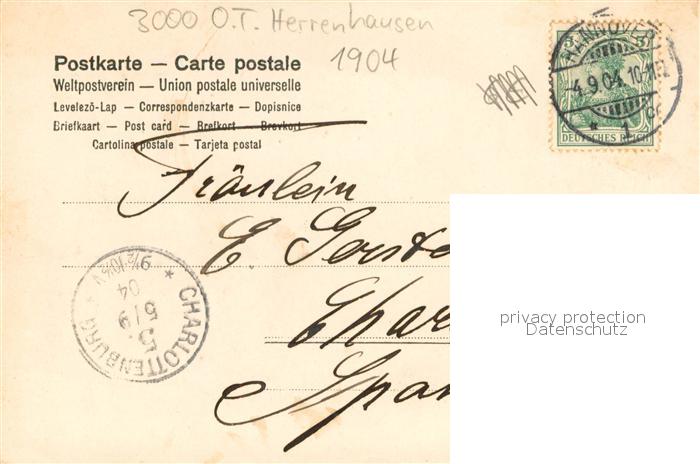 3000 O.T. Herrenhausen
1904
Postkarte — Carte postale
Weltpostverein — Union postale universelle
Levelező-Lap — Correspondenzkarte — Dopisnice
Briefkaart — Post card — Brefkort — Brevkort
Cartolina postale — Tarjeta postal
HANNOVER
4.9.04. 10-11
* 1 c
5 5
DEUTSCHES REICH
Fräulein
E.
Char
Span
CHARLOTTENBURG
5.
5/9
04
privacy protection
Datenschutz